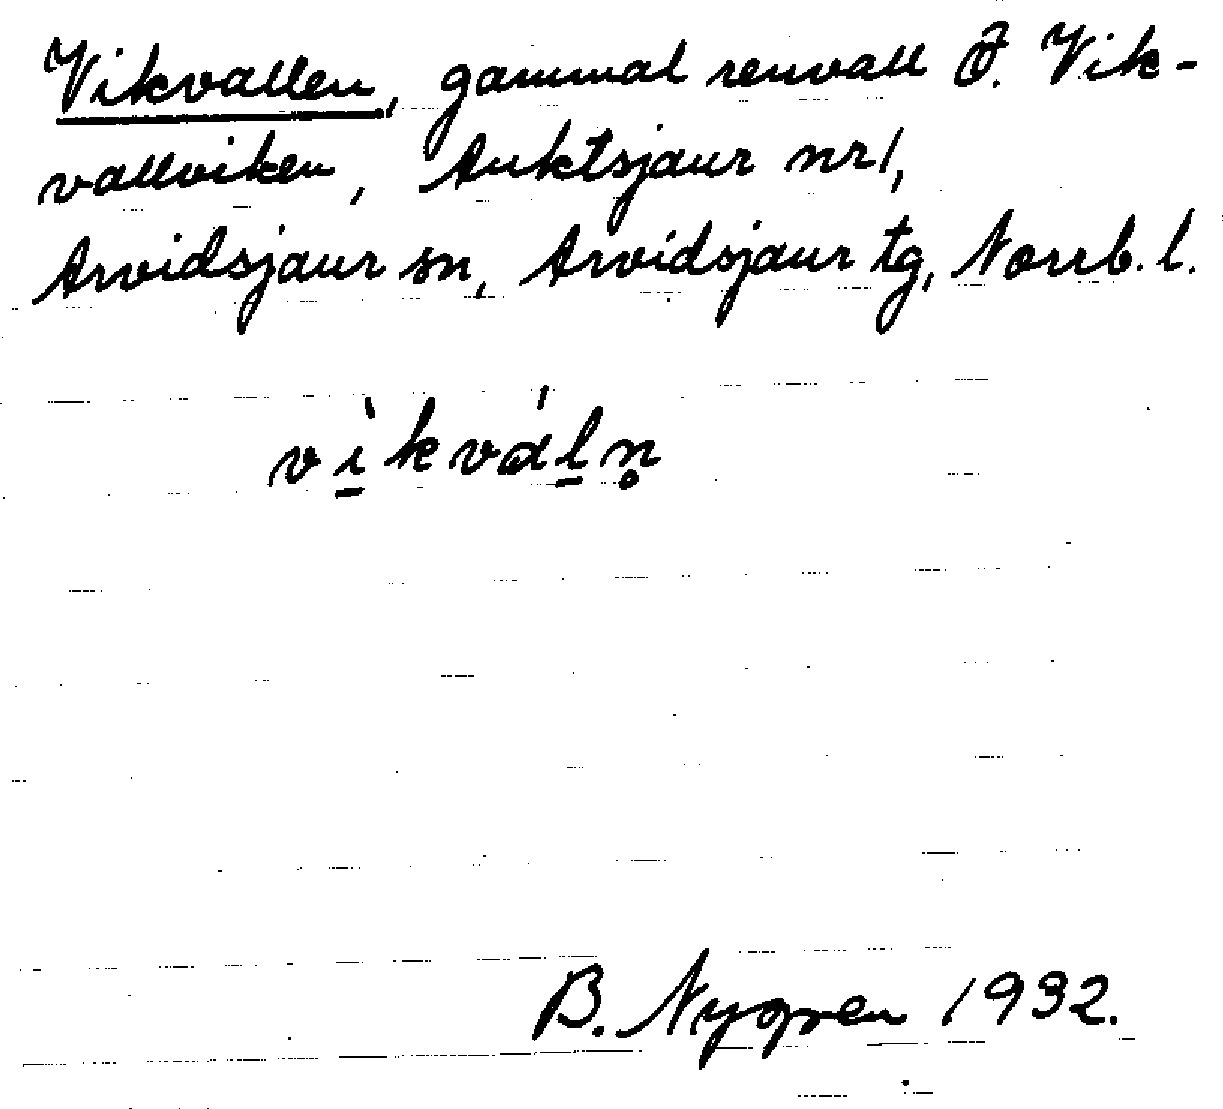 Vikvallen, gammal renvall Ö. Vik-
vallviken, Auktsjaur nr 1,
Arvidsjaur sn, Arvidsjaur tg, Norrb. l.
vì̱kváḻn̥
B. Nygren 1932.